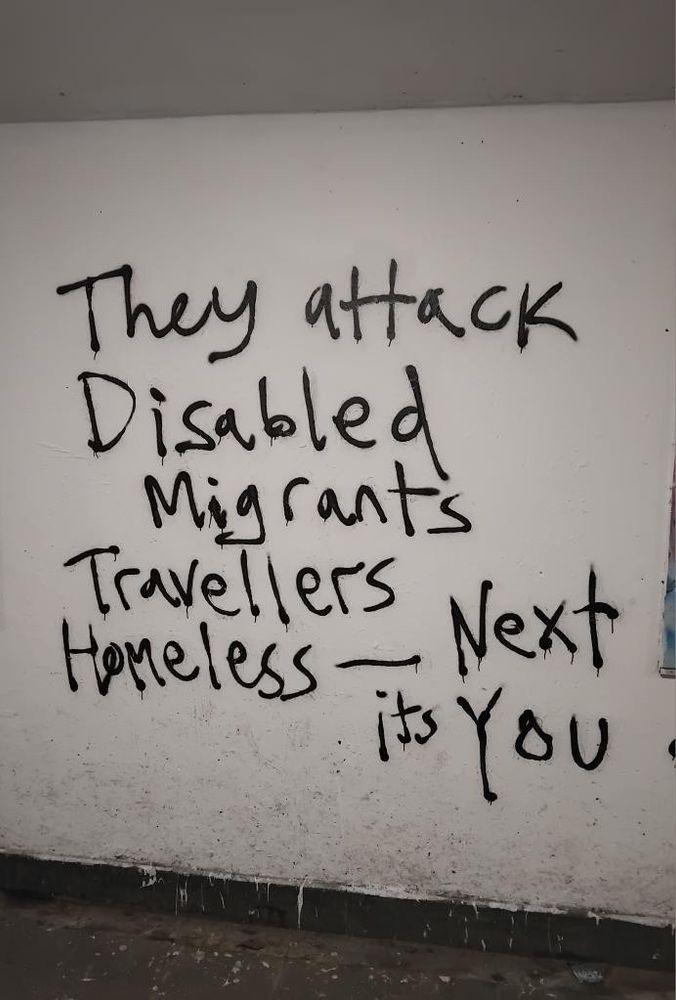 They attack
Disabled
Migrants
Travellers
Homeless — Next
its YOU